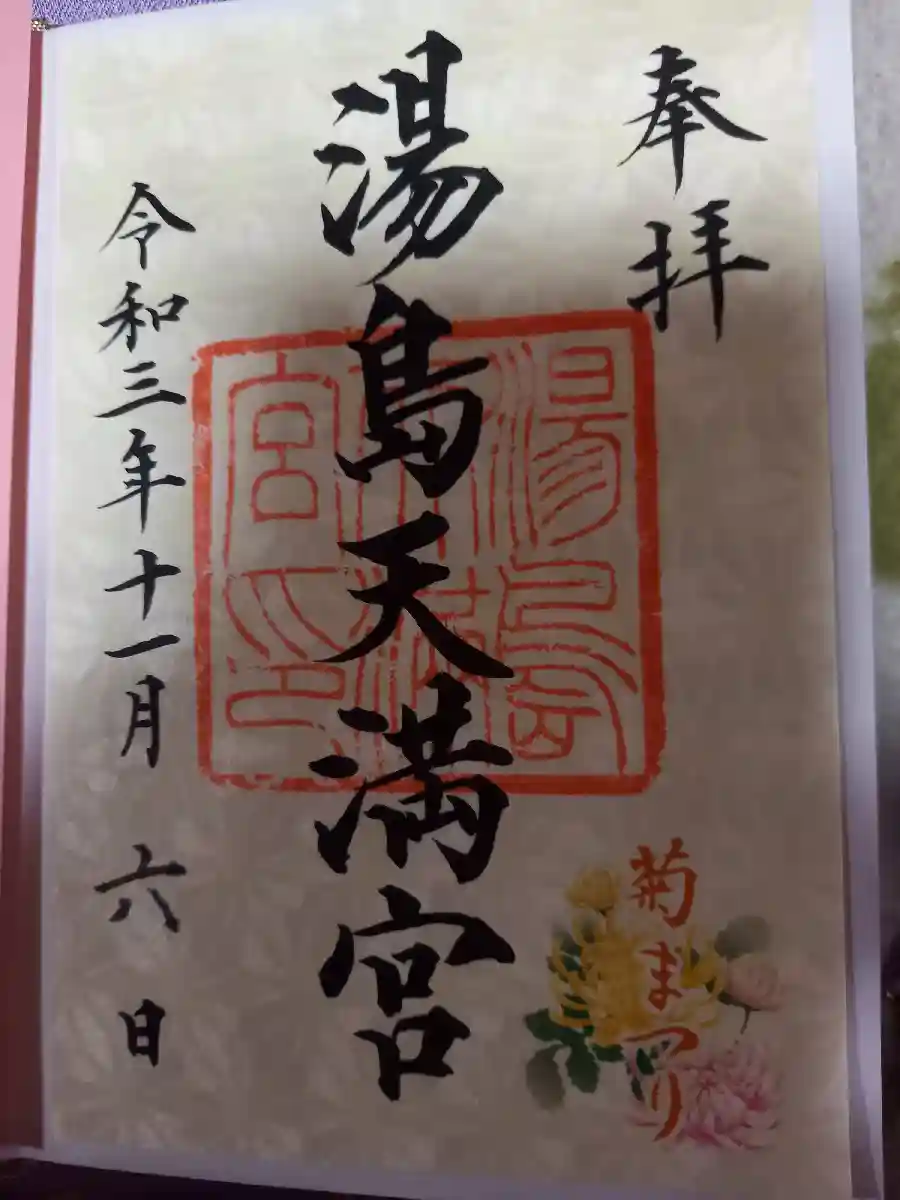 奉拝
菊まつり
湯島天満宮
湯島天満宮印
令和三年十一月六日